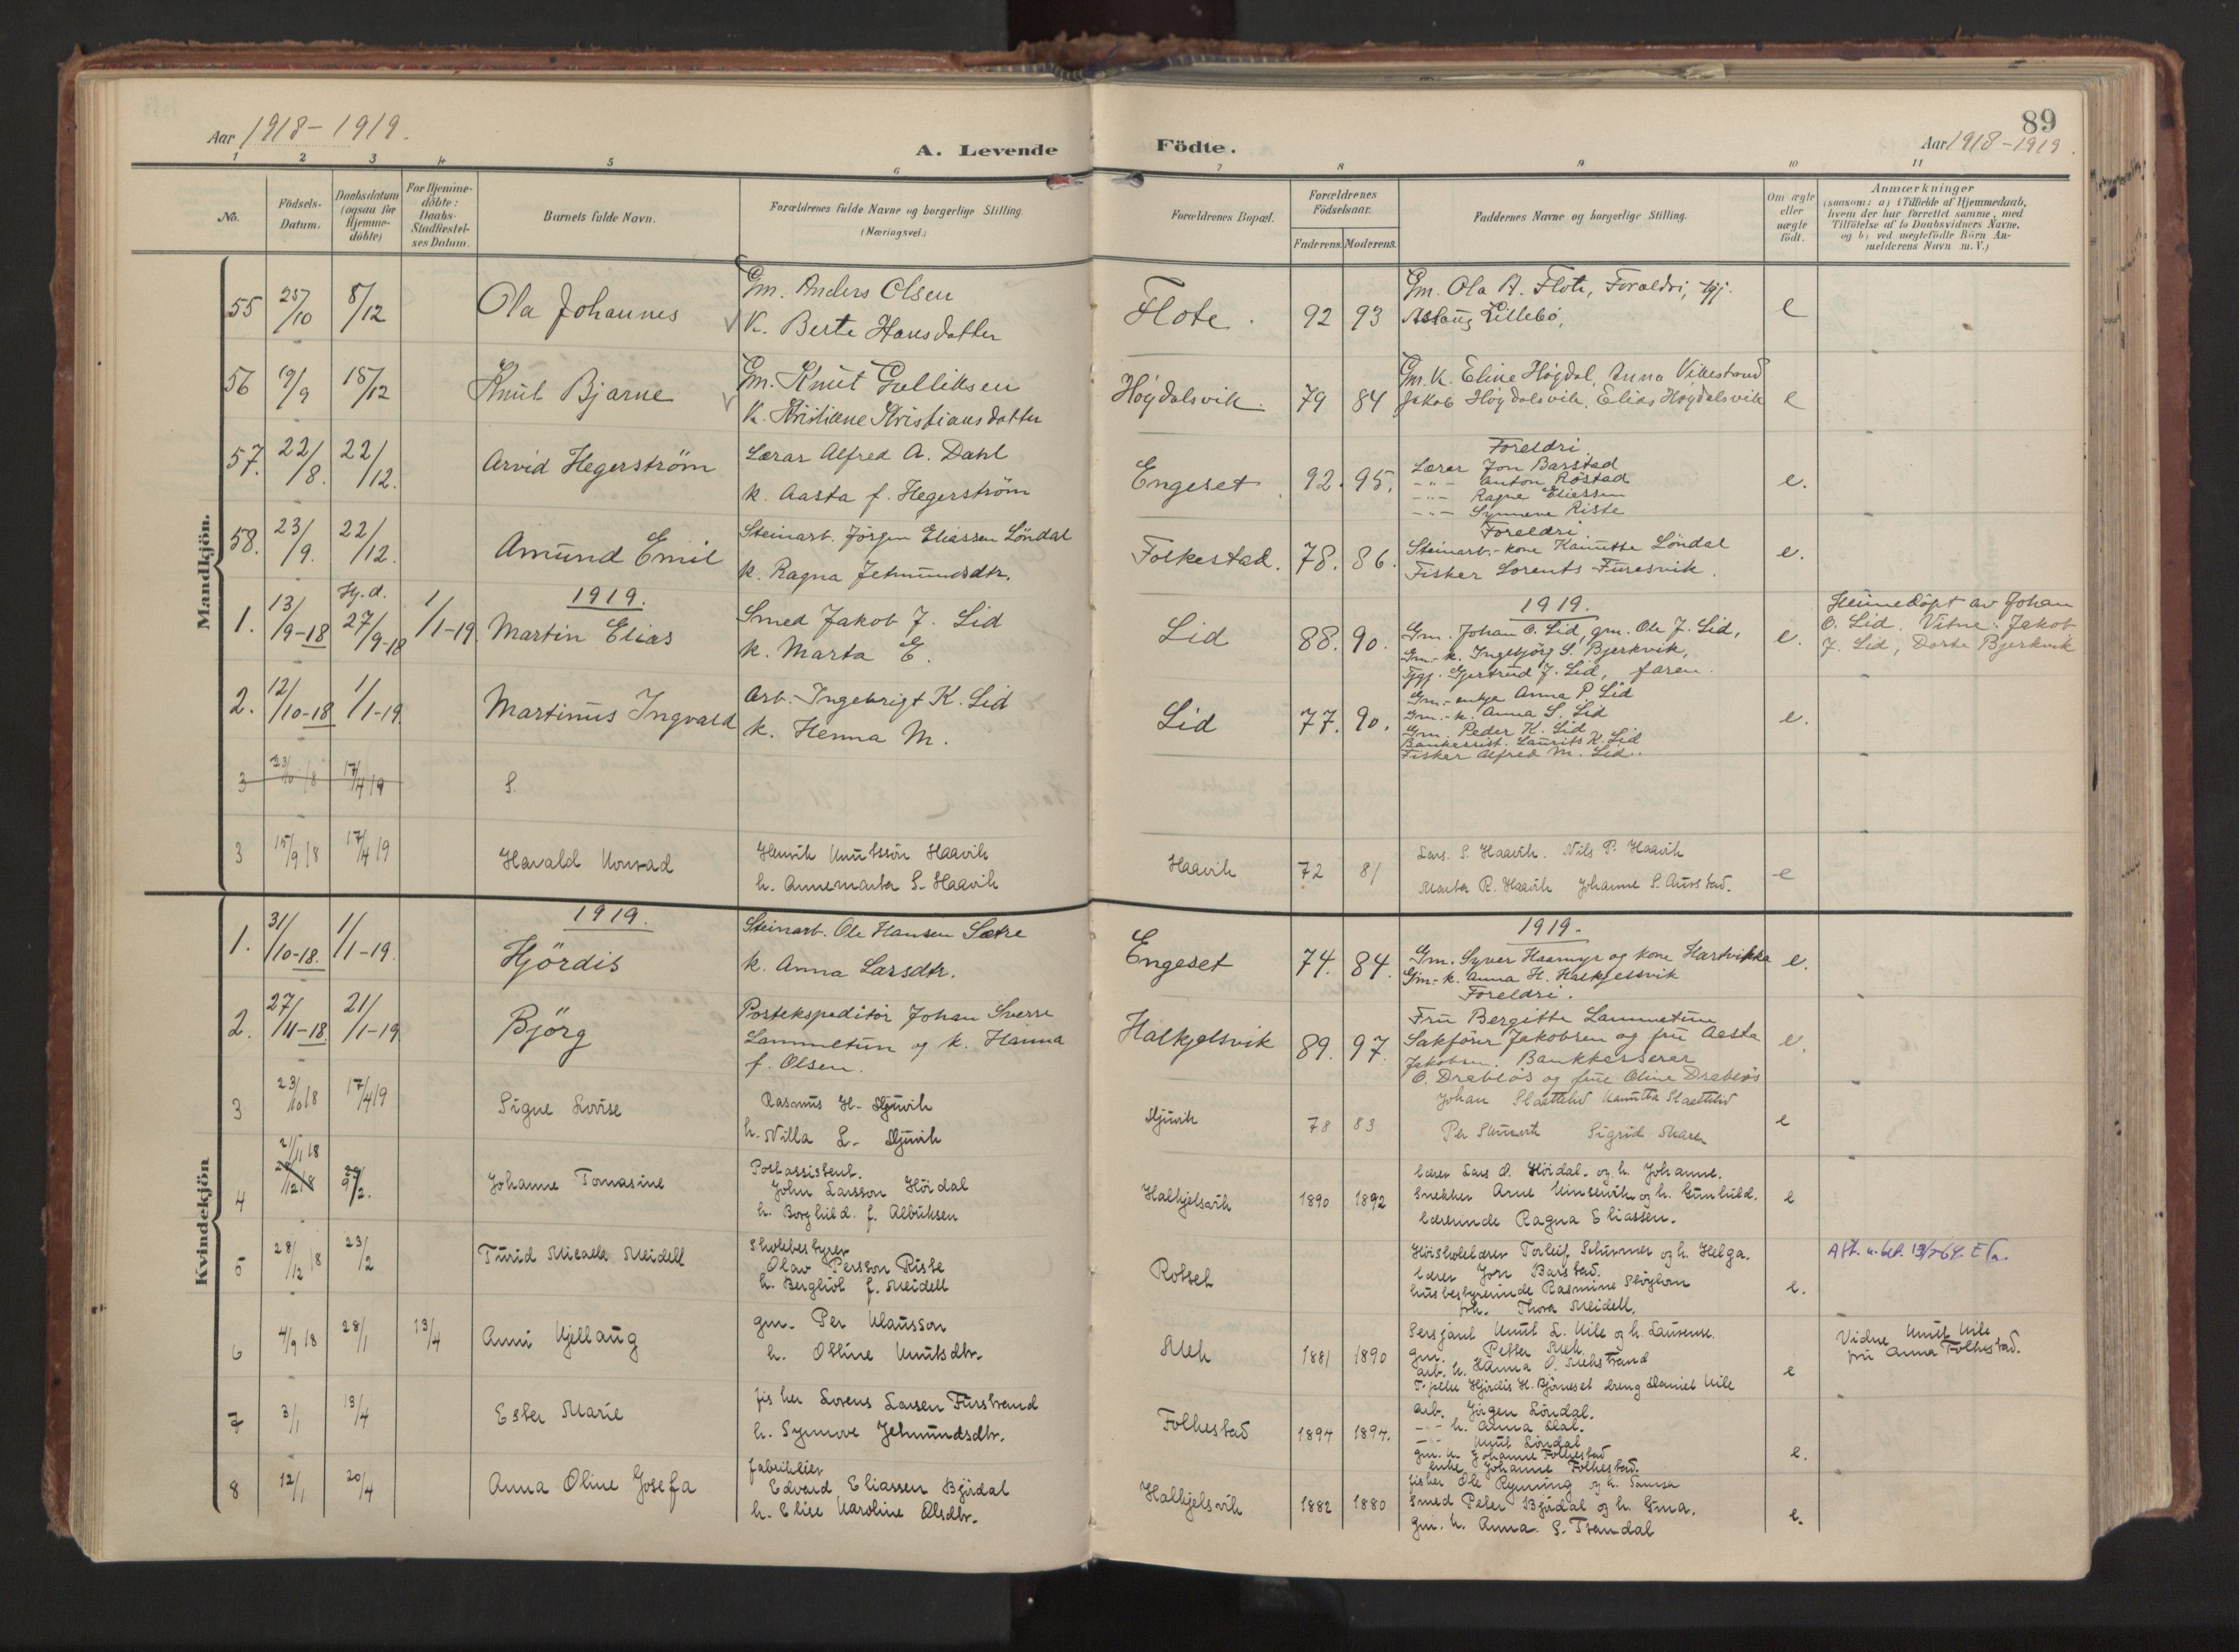 89
Aar 1918-1919.
A. Levende Födte.
Aar 1918-1919.
1 2 3 4 5 6 7 8 9 10 11
No.
Födsels-
Datum.
Daabsdatum
(ogsaa for
Hjemme-
döbte)
For Hjemme-
döbte:
Daabs-
Stadfæstel-
ses Datum.
Barnets fulde Navn.
Forældrenes fulde Navne og borgerlige Stilling
(Næringsvei.)
Forældrenes Bopæl.
Forældrenes
Födselsaar.
Faderens. Moderens.
Faddernes Navne og borgerlige Stilling.
Om ægte
eller
uægte
födt.
Anmærkninger
(saasom: a) i Tilfælde af Hjemmedaab,
hvem der har forrettet samme, med
Tilföielse af to Daabsvidners Navne,
og b) ved uægtefödte Börn An-
melderens Navn m. V.)
Mandkjön.
55 25/10 8/12 Ola Johannes
Gm. Anders Olsen
K. Berte Hansdatter
Flote. 92 93
Gm. Ola A. Flote, Foraldri,
Aslaug Lillebö,
e
56 19/9 15/12 Knut Bjarne
Gm. Knut Gulliksen
K. Kristiane Kristiansdatter
Högdalsvik. 79 84
Gm. K. Eline Högdal, Anna Vikestrand
Jakob Högdalsvik, Elias Högdalsvik
e
57. 22/8. 22/12. Arvid Hegerström
Lærar Alfred A. Dahl
k. Aasta f. Hegerström
Engeset. 92. 95.
Foreldri
Lærer Jon Barstad
-"- Anton Röstad
-"- Ragna Eliassen
-"- Synneve Riste
e.
58. 23/9. 22/12. Amund Emil
Steinarb. Jörgen Eliassen Löndal
k. Ragna Jetmundsdtr.
Folkestad. 78. 86.
Foreldri.
Steinarb.-kone Kanutte Löndal
Fisker Lorents Furesvik.
e.
1919.
1. 13/9-18 Hj.d. 27/9-18 1/1-19. Martin Elias
Smed Jakob J. Lid
k. Marta E.
Lid 88. 90.
1919.
Gm. Johan O. Lid, gm. Ole J. Lid,
Gm.-k. Ingebjörg S. Bjerkvik,
Tgj. Gjertrud J. Lid, faren.
e.
Heimedöpt av Johan
O. Lid. Vitne: Jakob
J. Lid, Dorte Bjerkvik
2. 12/10-18 1/1-19. Martinus Ingvald
Arb. Ingebrigt K. Lid
k. Henna M.
Lid 77. 90.
Gm.-enkje Anna P. Lid
Gm.-k. Anna S. Lid
Gm. Peder K. Lid
Laurits K. Lid
Fisker Alfred M. Lid.
e.
3 23/10 18 17/4 19 S.
3 15/9 18 17/4 19 Harald Konrad
Henrik Knutssön Haavik
k. Annemarta S. Haavik
Haavik 72 81
Lars. S. Haavik. Nils P. Haavik
Marta R. Haavik Johanne S. Aurstad.
e
Kvindekjön
1919.
1. 31/10-18. 1/1-19. Hjördis
Steinarb. Ole Hansen Sætre
k. Anna Larsdtr.
Engeset 74. 84.
1919.
Gm. Syver Haamyr og kone Hartvikka
Gm.-k. Anna H. Halkjelsvik
Foreldri.
e.
2. 27/11-18. 21/1-19 Björg
Postekspeditör Johan Sverre
Lammetun og k. Hanna
f. Olsen.
Halkjelsvik 89. 97.
Fru Bergitte Lammetun
Sakförer Jakobsen og fru Aasta
Jakobsen. Bankkasserer
O. Drablös og frue Oline Drablös
e.
3 23/10 18 17/4 19 Signe Lovise
Rasmus H. Djuvik
k. Villa L. Djuvik
Djuvik 78 83
Johan Slaattelid Kanutta Slaattelid
Per Sigrid
e
4 21/11 18 Johanne Tomasine
Postassistent.
John Larsson Höidal
k. Borghild. f. Albriksen
Halkjelsvik 1890 1892
Lærer Lars O. Höidal. og k. Johanne.
Snekker Arne og k. Gunhild.
Lærerinde Ragna Eliassen.
e
5 28/12 18 23/2 Turid Micaela Meidell
Skolebestyrer
Olav Persson Riste
k. Bergliot f. Meidell
Rotset
Höiskolelærer Torleif Schirmer og k. Helga.
Lærer Jon Barstad.
husbestyrerinde Rasmine
frk. Thora Meidell.
e.
6 4/9 18 28/1 13/4 Anni Kjellaug
gm. Per Klausson
k. Oline Knutsdtr.
Mek 1881 1890
Sersjant Knut L. Kile og k. Laurense.
gm. Petter Mek
arb. k. Hanna O. Mekstrand
Hjördis H. Björneset dreng Daniel Kile
e
Vidne Knut Kile
fru Anna Folkestad.
7 3/1 13/4 Ester Marie
fisker Lorens Larsen Furstrand
k. Synnove Jetmundsdtr.
Folkestad 1894 1894.
arb. Jörgen Löndal.
-"- k. Anna Dal.
-"- Knut Löndal
gm. k. Johanne Folkestad
enke Johanne Folkestad.
e.
8 12/1 20/4 Anna Oline Josefa
fabrikeier
Edvard Eliassen Björdal
k. Elise Karoline Olsdtr.
Halkjelsvik 1882 1880
fisker Ole Rynning og k.
Smed Peter Björdal og k. Gina.
gm. k. Anna. S. Trandal
e.